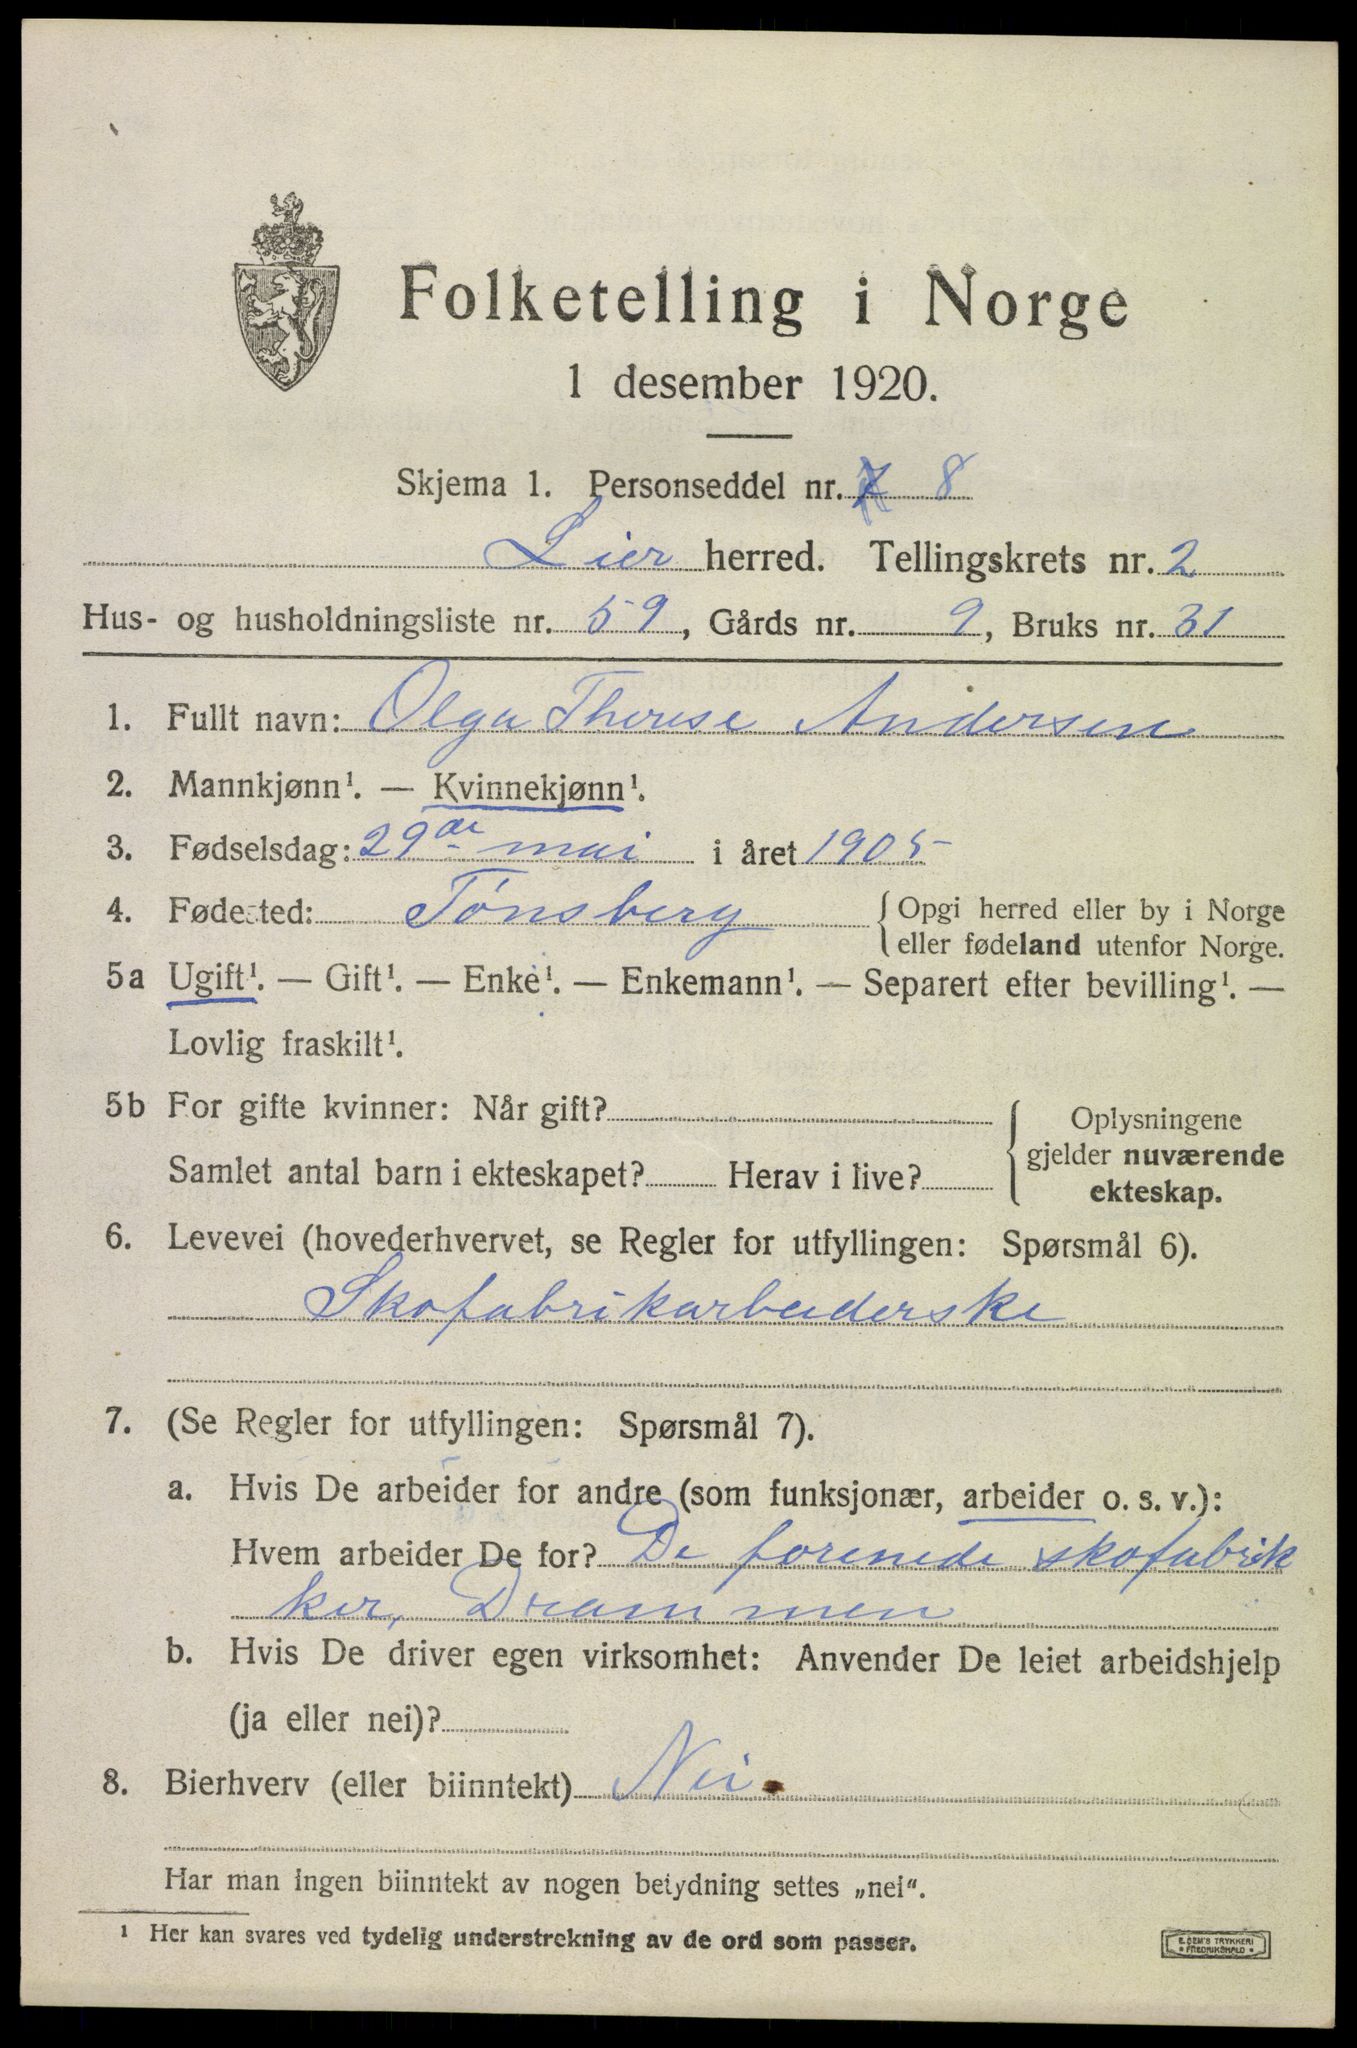 Folketelling i Norge
1 desember 1920.
Skjema 1. Personseddel nr. 8
Lier herred. Tellingskrets nr. 2
Hus- og husholdningsliste nr. 59, Gårds nr. 9, Bruks nr. 31
1. Fullt navn: Olga Therese Andersen
2. Mannkjønn¹. — Kvinnekjønn¹.
3. Fødselsdag: 29de mai i året 1905
4. Fødested: Tønsberg { Opgi herred eller by i Norge
eller fødeland utenfor Norge.
5a Ugift¹. — Gift¹. — Enke¹. — Enkemann¹. — Separert efter bevilling¹. —
Lovlig fraskilt¹.
5b For gifte kvinner: Når gift? { Oplysningene
gjelder nuværende
Samlet antal barn i ekteskapet? Herav i live?
ekteskap.
6. Levevei (hovederhvervet, se Regler for utfyllingen: Spørsmål 6).
Skofabrikarbeiderske
7. (Se Regler for utfyllingen: Spørsmål 7).
a. Hvis De arbeider for andre (som funksjonær, arbeider o. s. v.):
Hvem arbeider De for? De forenede skofabrik
ker, Drammen
b. Hvis De driver egen virksomhet: Anvender De leiet arbeidshjelp
(ja eller nei)?
8. Bierhverv (eller biinntekt) Nei.
Har man ingen biinntekt av nogen betydning settes „nei“.
¹ Her kan svares ved tydelig understrekning av de ord som passer.
E. SEM'S TRYKKERI
• FREDRIKSHALD •